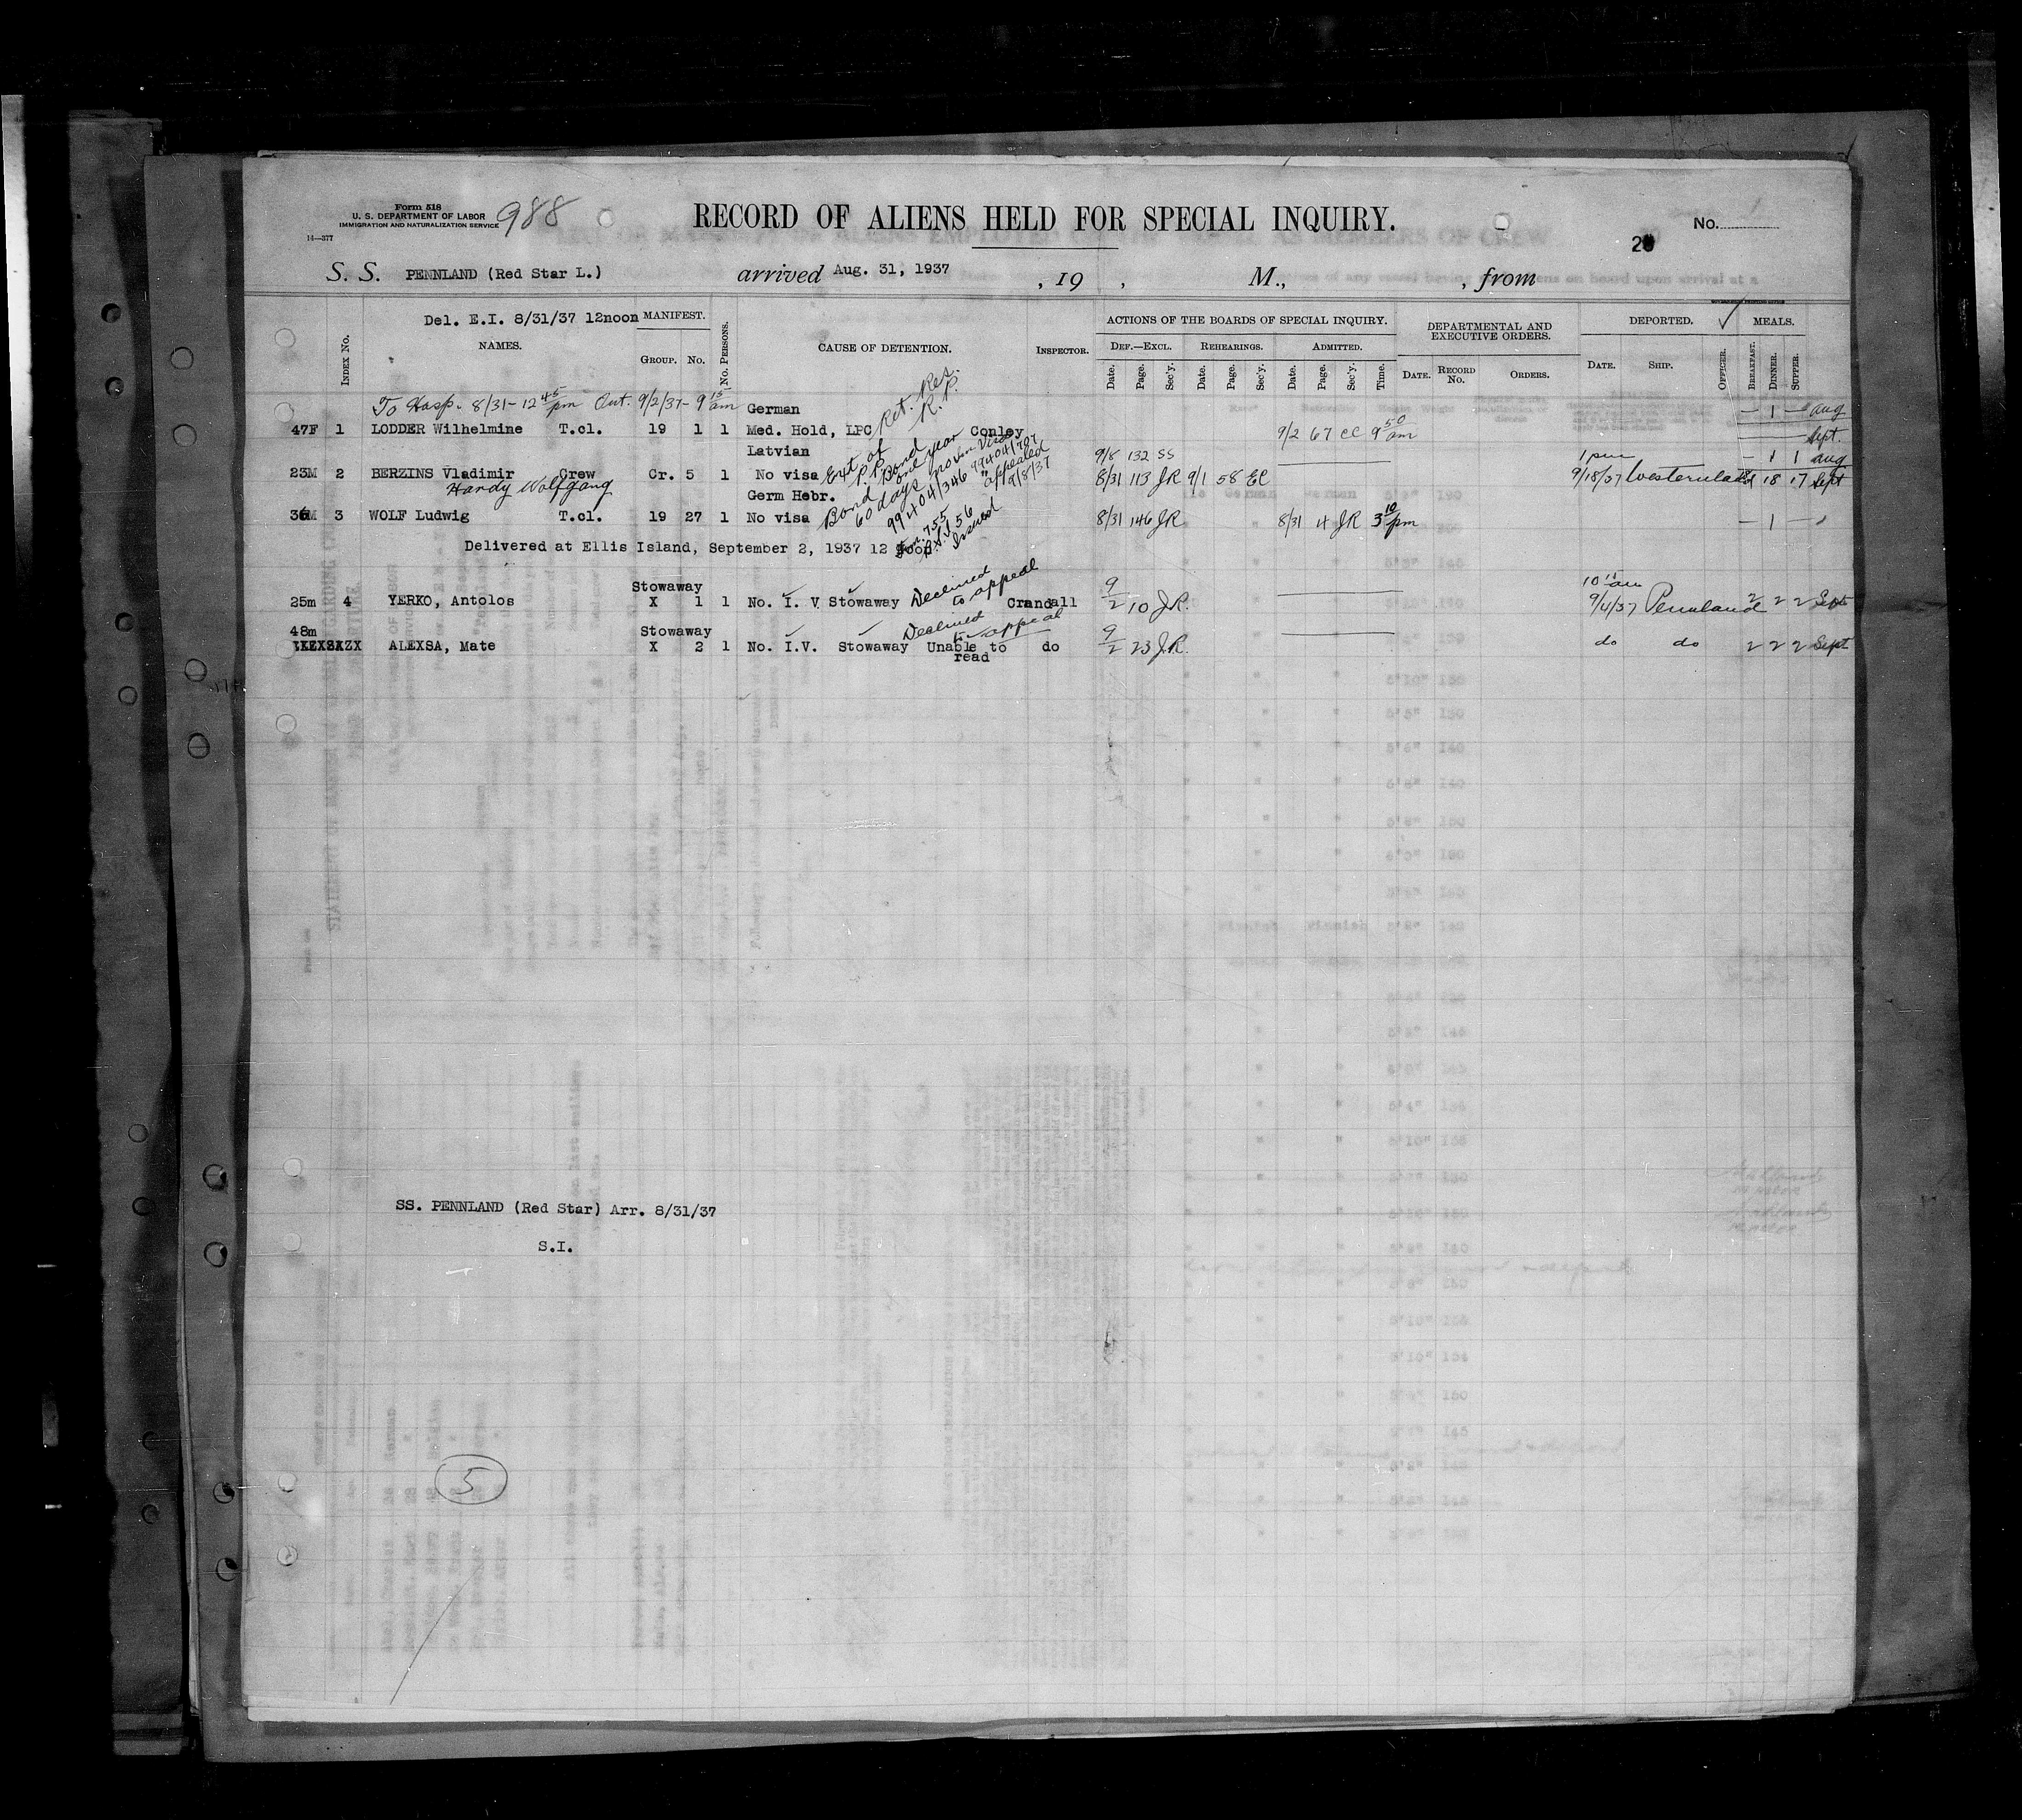 Form 518
U. S. DEPARTMENT OF LABOR
IMMIGRATION AND NATURALIZATION SERVICE
14—377
988
RECORD OF ALIENS HELD FOR SPECIAL INQUIRY.
No.
S. S. PENNLAND (Red Star L.) arrived Aug. 31, 1937 , 19 , M., , from
Del. E.I. 8/31/37 12noon MANIFEST. ACTIONS OF THE BOARDS OF SPECIAL INQUIRY. DEPARTMENTAL AND EXECUTIVE ORDERS. DEPORTED. MEALS.
INDEX No. NAMES. GROUP. No. No. PERSONS. CAUSE OF DETENTION. INSPECTOR. DEF.—EXCL. REHEARINGS. ADMITTED.
Date. Page. Sec'y. Date. Page. Sec'y. Date. Page. Sec'y. Time. DATE. RECORD No. ORDERS. DATE. SHIP. OFFICER. BREAKFAST. DINNER. SUPPER.
To Hosp. 8/31- 12 45 pm Out. 9/2/37- 9 15 am German Ret. Res. R.P. — 1 — Aug
47F 1 LODDER Wilhelmine T.cl. 19 1 1 Med. Hold, LPC Conley 9/2 67 CC 9 50 am Sept.
Latvian Ext of 9/8 132 SS 1 pm — 1 1 Aug
23M 2 BERZINS Vladimir Crew Cr. 5 1 No visa 8/31 113 JR 9/1 58 EC 9/18/37 Westernland 18 17 Sept
Hardy Wolfgang Germ Hebr. Bond 60 days 99404/346 99404/707 appealed 9/8/37
3 WOLF Ludwig T.cl. 19 27 1 No visa 8/31 146 JR 8/31 4 JR 3 10 pm — 1 —
755 56 Issued
Delivered at Ellis Island, September 2, 1937 12 noon
Stowaway Declined to appeal 10 15 am
25m 4 YERKO, Antolos X 1 1 No. I. V. Stowaway Crandall 9/2 10 J.R. 9/4/37 Pennland 2 2 2 Sept
48m Stowaway Declined to appeal
ALEXSA, Mate X 2 1 No. I.V. Stowaway Unable to read do 9/2 23 J.R. do do 2 2 2 Sept
SS. PENNLAND (Red Star) Arr. 8/31/37
S.I.
5